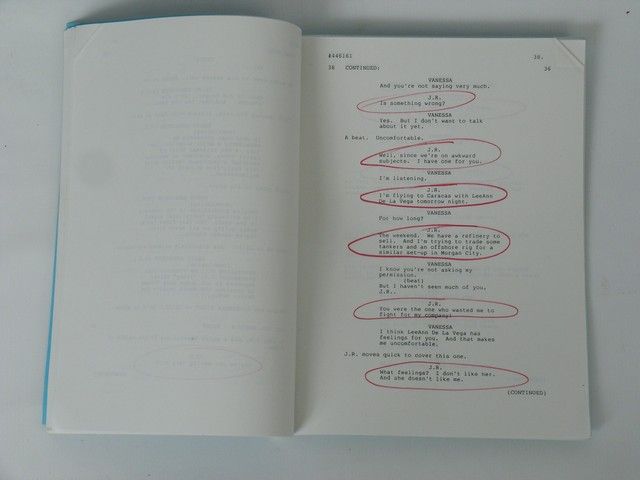 #446161 38.
36 CONTINUED: 36
VANESSA
And you're not saying very much.
J.R.
Is something wrong?
VANESSA
Yes. But I don't want to talk
about it yet.
A beat. Uncomfortable.
J.R.
Well, since we're on awkward
subjects. I have one for you.
VANESSA
I'm listening.
J.R.
I'm flying to Caracas with LeeAnn
De La Vega tomorrow night.
VANESSA
For how long?
J.R.
The weekend. We have a refinery to
sell. And I'm trying to trade some
tankers and an offshore rig for a
similar set-up in Morgan City.
VANESSA
I know you're not asking my
permission.
(beat)
But I haven't seen much of you,
J.R..
J.R.
You were the one who wanted me to
fight for my company!
VANESSA
I think LeeAnn De La Vega has
feelings for you. And that makes
me uncomfortable.
J.R. moves quick to cover this one.
J.R.
What feelings? I don't like her.
And she doesn't like me.
(CONTINUED)